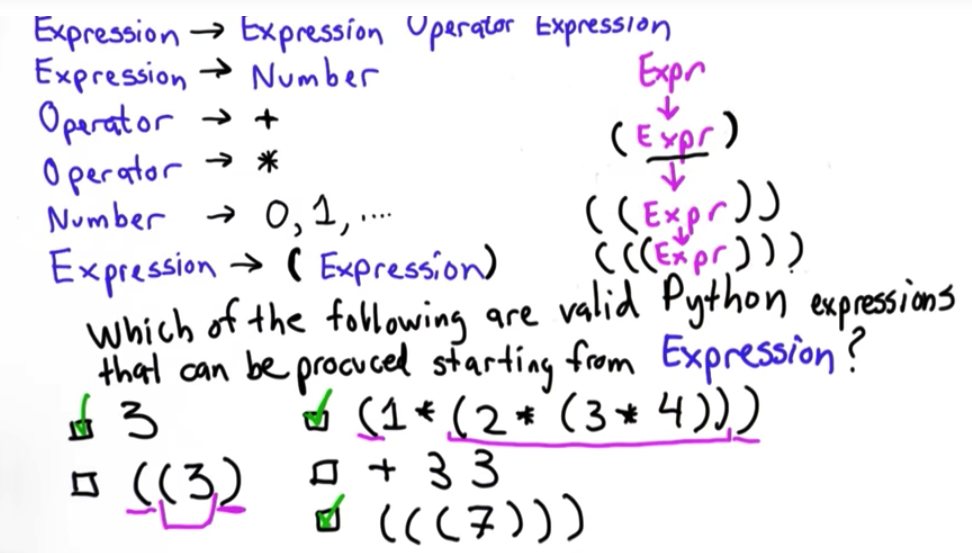 Expression → Expression Operator Expression
Expression → Number
Operator → +
Operator → *
Number → 0, 1, ....
Expression → ( Expression)
Expr
↓
( Expr )
↓
( ( Expr ) )
↓
( ( ( Expr ) ) )
Which of the following are valid Python expressions
that can be procuced starting from Expression?
3
(1 * (2 * (3 * 4)))
((3)
+ 3 3
(((7)))